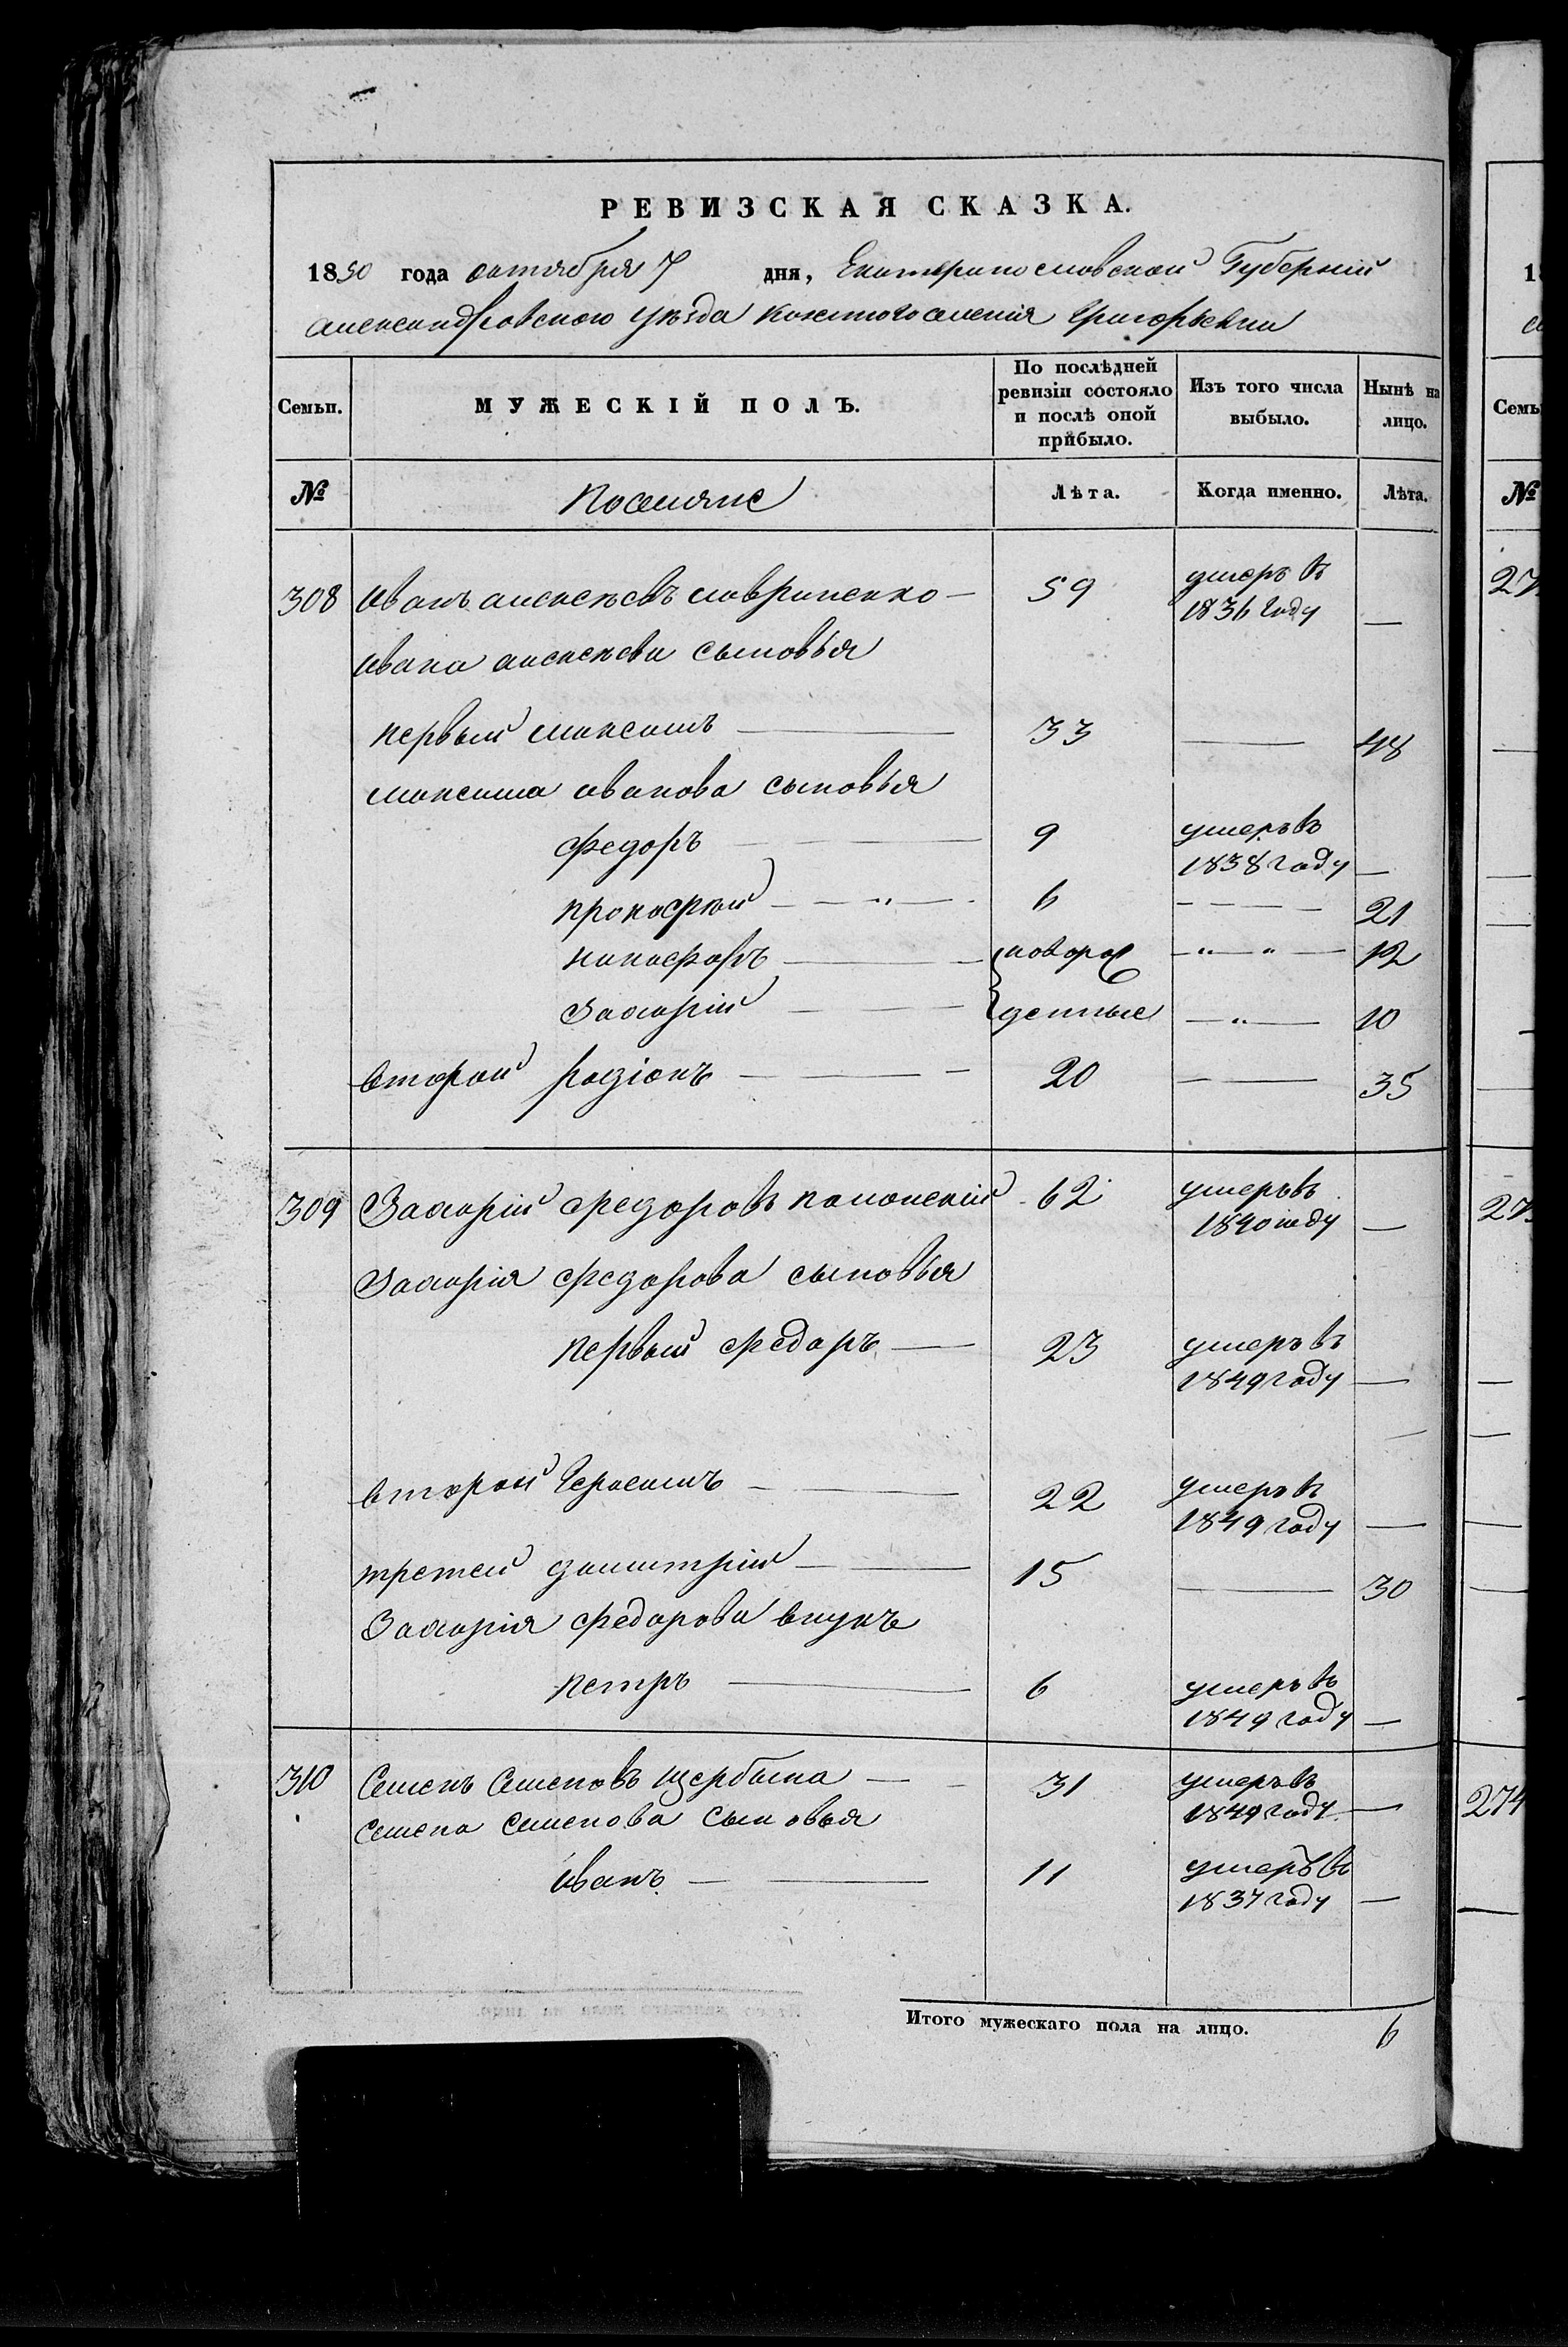 РЕВИЗСКАЯ СКАЗКА.
1850 года октября 7 дня, Екатеринославской Губерніи
александровского уѣзда казенного селенія Григорьевки
Семьи. МУЖЕСКІЙ ПОЛЪ. По послѣдней ревизіи состояло и послѣ оной прибыло. Изъ того числа выбыло. Нынѣ на лицо.
№ Поселяне Лѣта. Когда именно. Лѣта.
308 Иванъ алексѣевъ лавриненко — 59 умеръ въ 1836 году —
Ивана алексѣева сыновья
первый максимъ — 33 — 48
максима иванова сыновья
федоръ — 9 умеръ въ 1838 году —
прокофѣй — 6 — 21
никифоръ — новорож — 12
Захарій — денные — 10
второй родіонъ — 20 — 35
309 Захарій федоровъ 62 умеръ въ 1840 году —
Захарія федорова сыновья
первый федоръ — 23 умеръ въ 1849 году —
второй Герасимъ — 22 умеръ въ 1849 году —
третей димитрій — 15 — 30
Захарія федорова внукъ
петръ — 6 умеръ въ 1849 году —
310 Семенъ Семеновъ щербина — 31 умеръ въ 1849 году —
семена семенова сыновья
иванъ — 11 умеръ въ 1837 году —
Итого мужескаго пола на лицо. 6
Семь
№
274